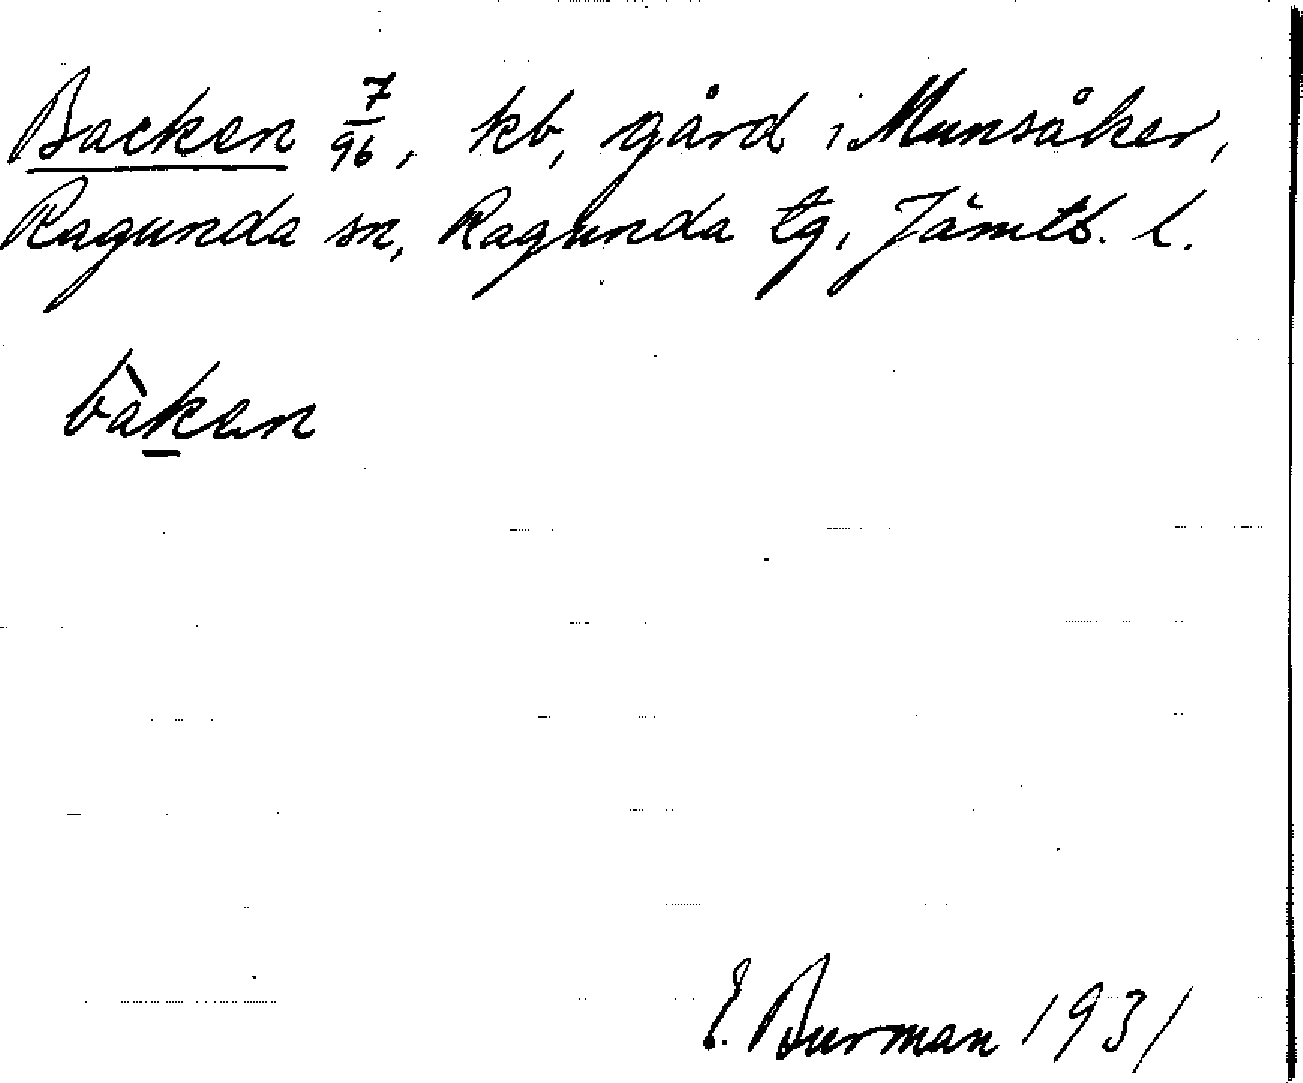 Backen 7/96, kb, gård i Munsåker,
Ragunda sn, Ragunda tg, Jämtl. l.
bàkan
E. Burman 1931